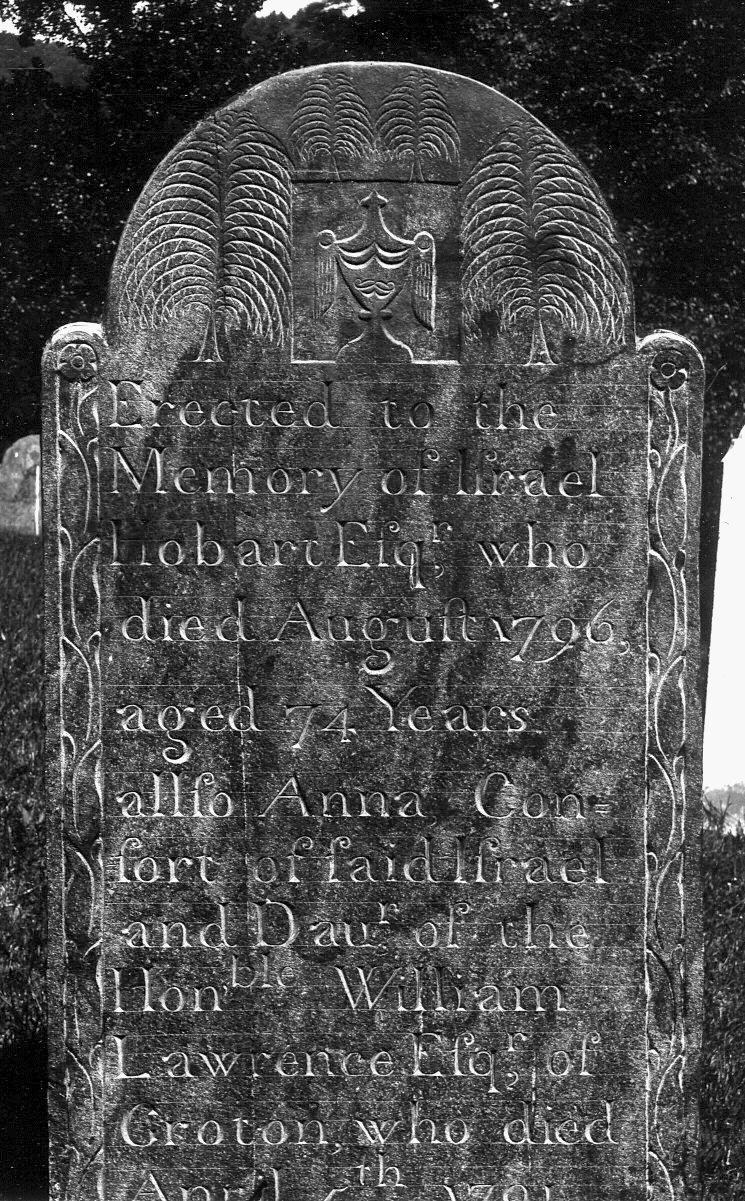 Erected to the
Memory of Iſrael
Hobart Eſqʳ, who
died Auguſt 1796,
aged 74 Years.
allſo Anna, Con=
ſort of ſaid Iſrael
and Dauʳ. of the
Honᵇˡᵉ. William
Lawrence Eſqʳ, of
Groton, who died
April